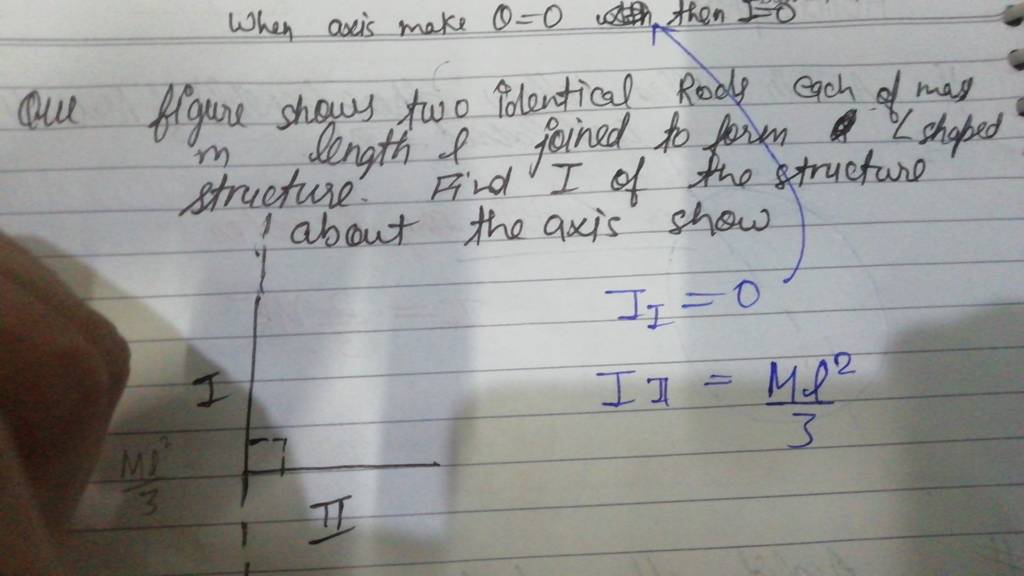 When axis make θ=0 then I=0
Que figure shows two identical Rods each of mass
m length l joined to form L shaped
structure. Find I of the structure
about the axis show
I_I = 0
I_II = Ml²/3
I
Ml²/3
II